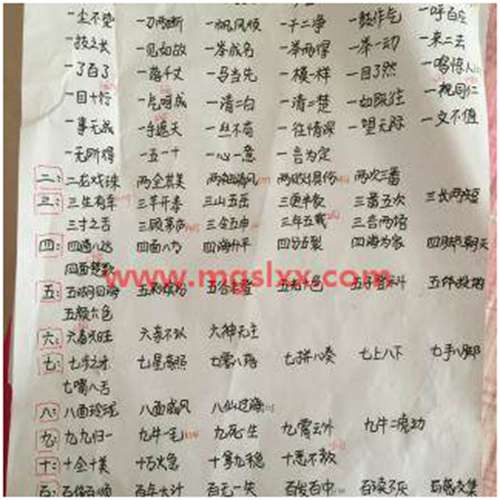 一尘不染 一刀两断 一帆风顺 一干二净 一鼓作气 一呼百应
一技之长 一见如故 一举成名 一举两得 一举一动 一来二去
一了百了 一落千丈 一马当先 一模一样 一目了然 一鸣惊人
一目十行 一气呵成 一清二白 一清二楚 一如既往 一视同仁
一事无成 一手遮天 一丝不苟 一往情深 一望无际 一文不值
一无所得 一五一十 一心一意 一言为定
二: 二龙戏珠 两全其美 两袖清风 两败俱伤 两次三番
三: 三生有幸 三羊开泰 三山五岳 三更半夜 三番五次 三长两短
三寸之舌 三顾茅庐 三令五申 三年五载 三言两语
四: 四通八达 四面八方 四海升平 四分五裂 四海为家 四脚朝天
四面楚歌
www.mgslxx.com
五: 五湖四海 五彩缤纷 五谷丰登 五光十色 五体投地
五颜六色
六: 六畜兴旺 六亲不认 六神无主
七: 七步之才 七星高照 七零八落 七拼八凑 七上八下 七手八脚
七嘴八舌
八: 八面玲珑 八面威风 八仙过海
九: 九九归一 九牛一毛 九死一生 九霄云外 九牛二虎力
十: 十全十美 十万火急 十拿九稳 十恶不赦
百: 百依百顺 百年大计 百无一失 百发百中 百读不厌 百感交集